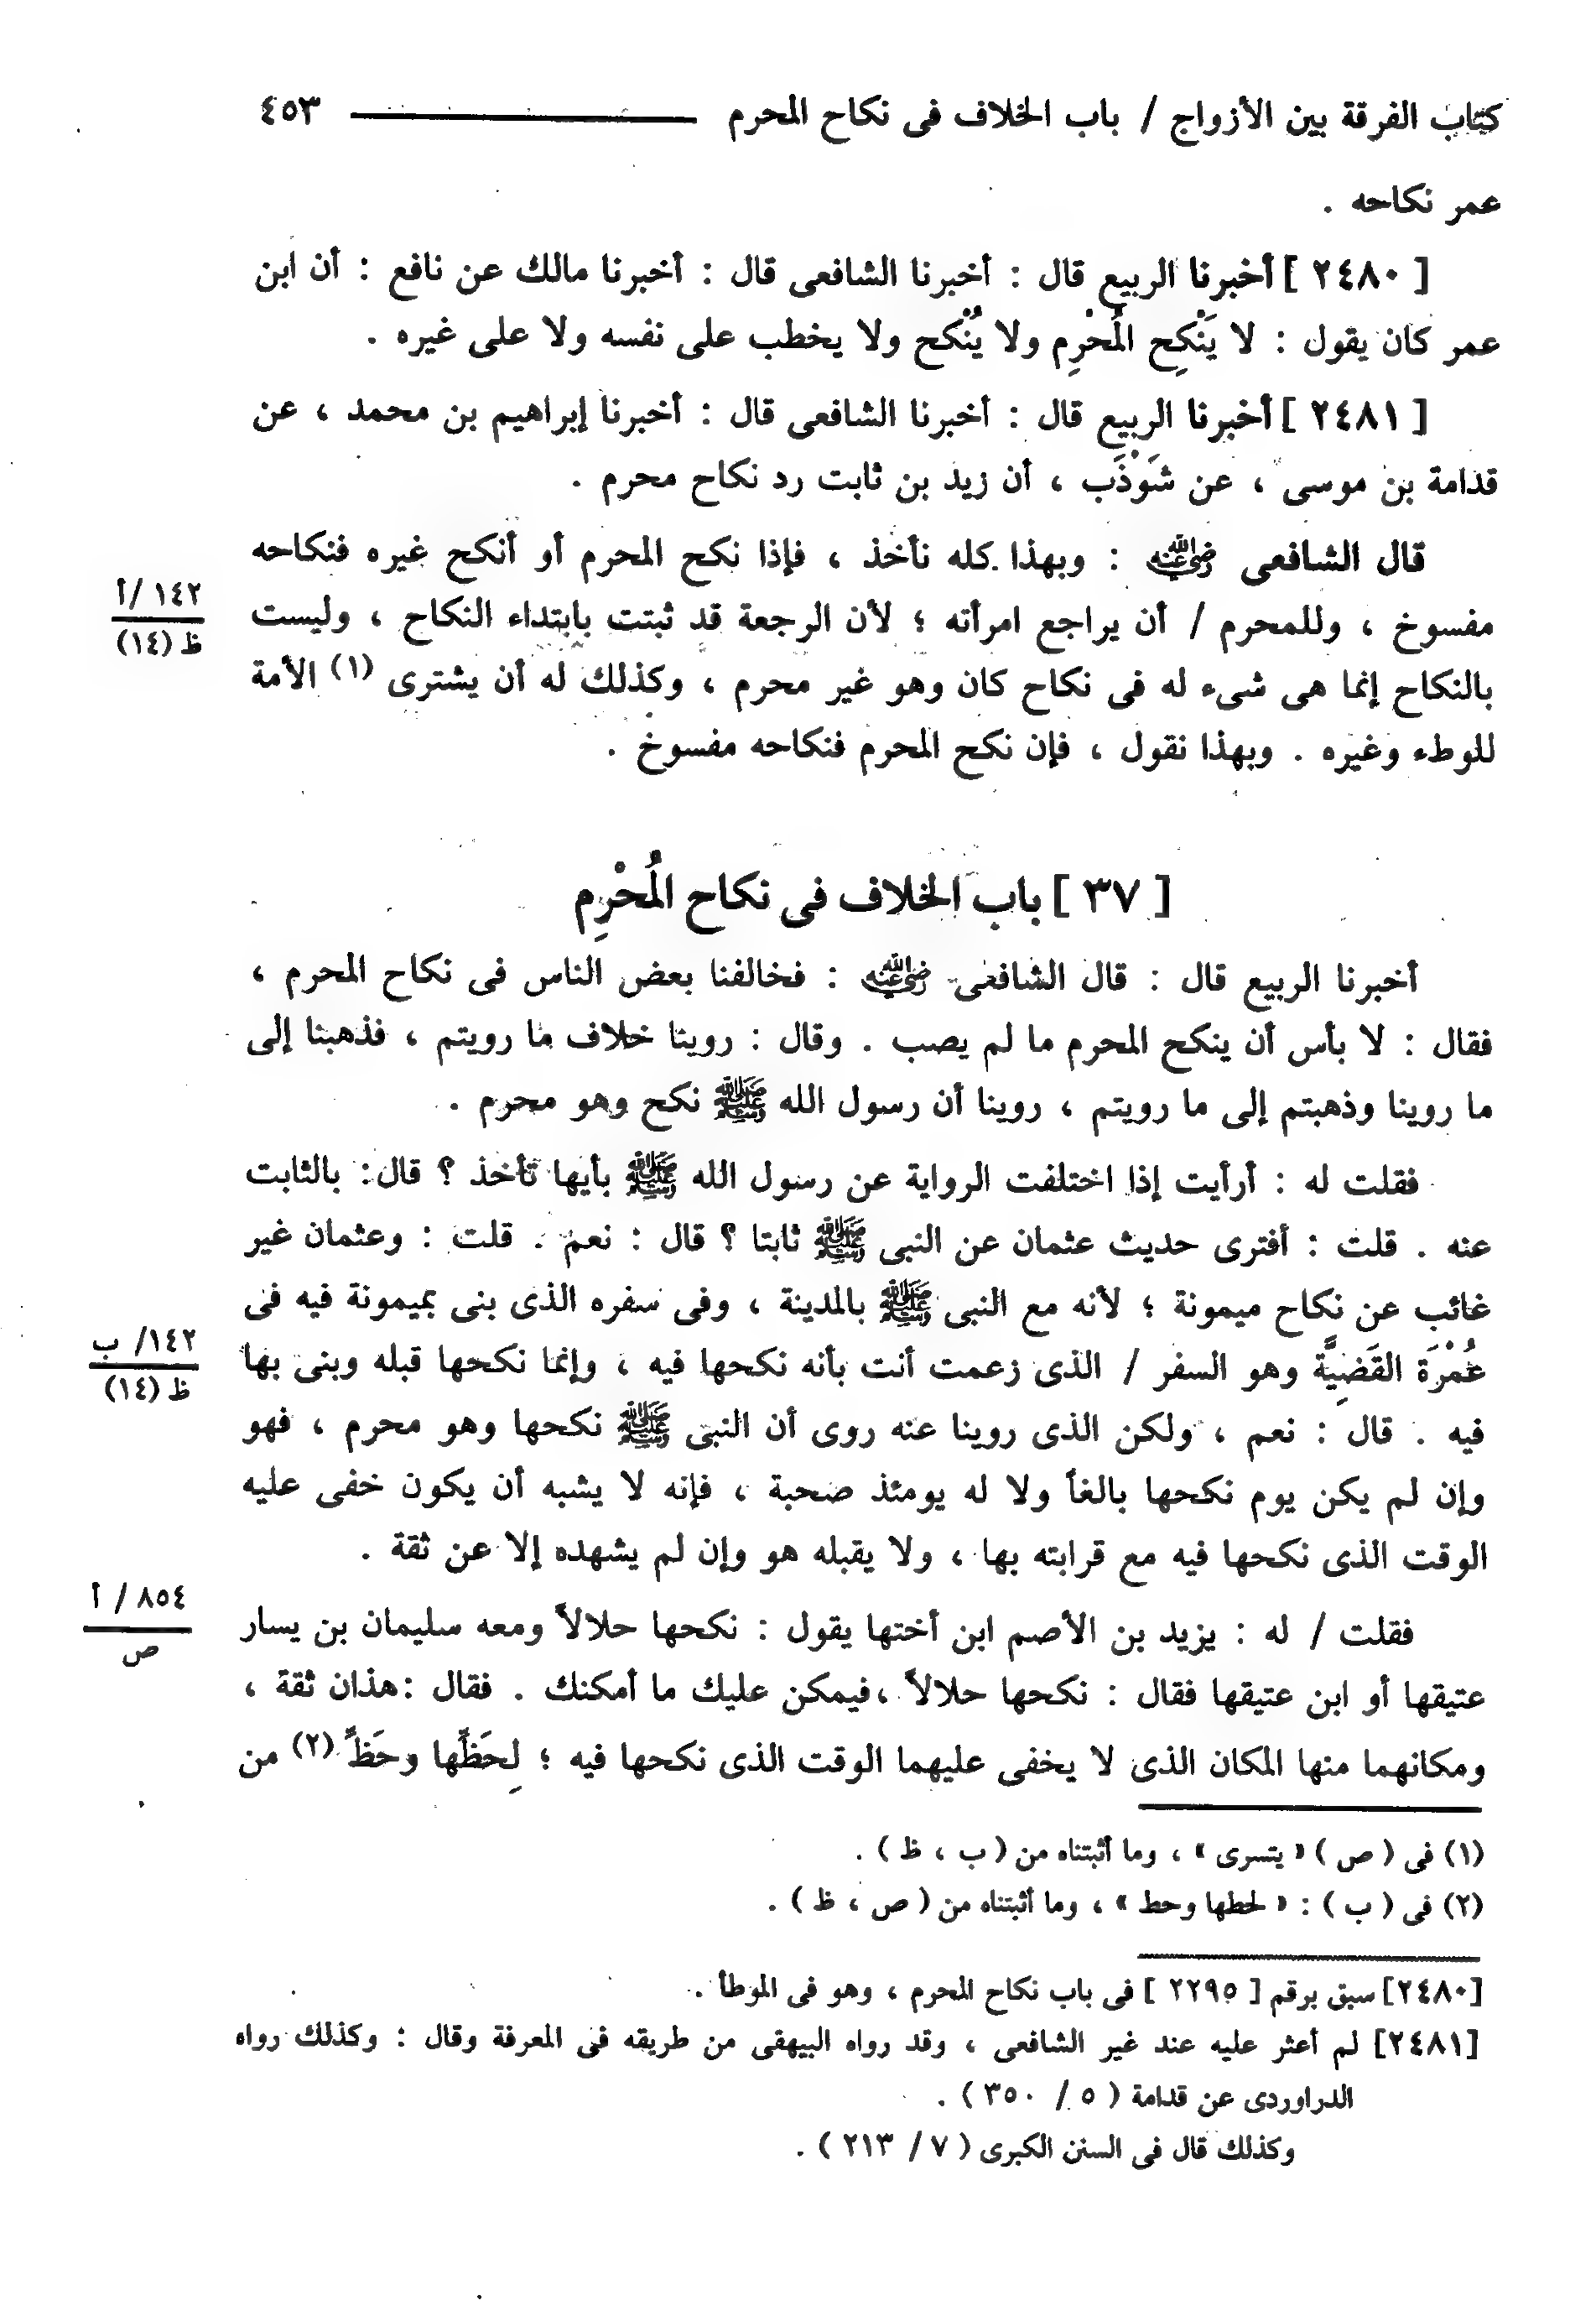 كتاب الفرقة بين الأزواج / باب الخلاف فى نكاح المحرم ٤٥٣
عمر نكاحه .
[ ٢٤٨٠ ] أخبرنا الربيع قال : أخبرنا الشافعى قال : أخبرنا مالك عن نافع : أن ابن
عمر كان يقول : لا يَنْكِح المُحْرِم ولا يُنْكح ولا يخطب على نفسه ولا على غيره .
[ ٢٤٨١ ] أخبرنا الربيع قال : أخبرنا الشافعى قال : أخبرنا إبراهيم بن محمد ، عن
قدامة بن موسى ، عن شَوْذَب ، أن زيد بن ثابت رد نكاح محرم .
قال الشافعى رضي الله عنه : وبهذا كله نأخذ ، فإذا نكح المحرم أو أنكح غيره فنكاحه
مفسوخ ، وللمحرم / أن يراجع امرأته ؛ لأن الرجعة قد ثبتت بابتداء النكاح ، وليست
١٤٢ /أ
ظ (١٤)
بالنكاح إنما هى شىء له فى نكاح كان وهو غير محرم ، وكذلك له أن يشترى (١) الأمة
للوطء وغيره . وبهذا نقول ، فإن نكح المحرم فنكاحه مفسوخ .
[ ٣٧ ] باب الخلاف فى نكاح المُحْرِم
أخبرنا الربيع قال : قال الشافعى رضي الله عنه : فخالفنا بعض الناس فى نكاح المحرم ،
فقال : لا بأس أن ينكح المحرم ما لم يصب . وقال : روينا خلاف ما رويتم ، فذهبنا إلى
ما روينا وذهبتم إلى ما رويتم ، روينا أن رسول الله ﷺ نكح وهو محرم .
فقلت له : أرأيت إذا اختلفت الرواية عن رسول الله ﷺ بأيها تأخذ ؟ قال: بالثابت
عنه . قلت : أفترى حديث عثمان عن النبى ﷺ ثابتا ؟ قال : نعم . قلت : وعثمان غير
غائب عن نكاح ميمونة ؛ لأنه مع النبى ﷺ بالمدينة ، وفى سفره الذى بنى بميمونة فيه فى
عُمْرَة القَضِيَّة وهو السفر / الذى زعمت أنت بأنه نكحها فيه ، وإنما نكحها قبله وبنى بها
١٤٢/ ب
ظ (١٤)
فيه . قال : نعم ، ولكن الذى روينا عنه روى أن النبى ﷺ نكحها وهو محرم ، فهو
وإن لم يكن يوم نكحها بالغاً ولا له يومئذ صحبة ، فإنه لا يشبه أن يكون خفى عليه
الوقت الذى نكحها فيه مع قرابته بها ، ولا يقبله هو وإن لم يشهده إلا عن ثقة .
فقلت / له : يزيد بن الأصم ابن أختها يقول : نكحها حلالاً ومعه سليمان بن يسار
٨٥٤ / أ
ص
عتيقها أو ابن عتيقها فقال : نكحها حلالاً ،فيمكن عليك ما أمكنك . فقال :هذان ثقة ،
ومكانهما منها المكان الذى لا يخفى عليهما الوقت الذى نكحها فيه ؛ لِحَظِّها وحَظِّ (٢) من
(١) فى ( ص ) « يتسرى » ، وما أثبتناه من ( ب ، ظ ) .
(٢) فى ( ب ) : « لخطها وحط » ، وما أثبتناه من ( ص ، ظ ) .
[٢٤٨٠] سبق برقم [ ٢٢٩٥ ] فى باب نكاح المحرم ، وهو فى الموطأ .
[٢٤٨١] لم أعثر عليه عند غير الشافعى ، وقد رواه البيهقى من طريقه فى المعرفة وقال : وكذلك رواه
الدراوردى عن قدامة ( ٥ / ٣٥٠ ) .
وكذلك قال فى السنن الكبرى ( ٧ / ٢١٣ ) .